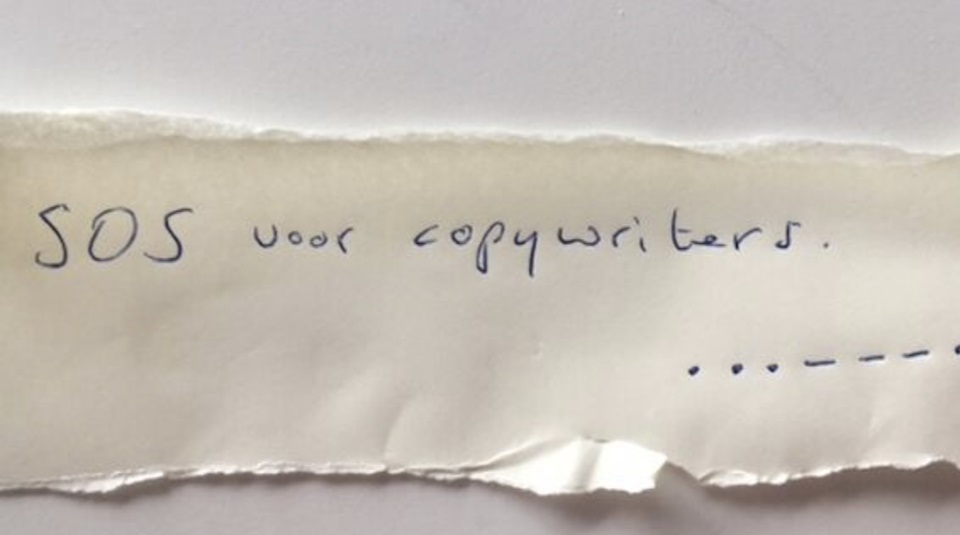 SOS voor copywriters.
...---.